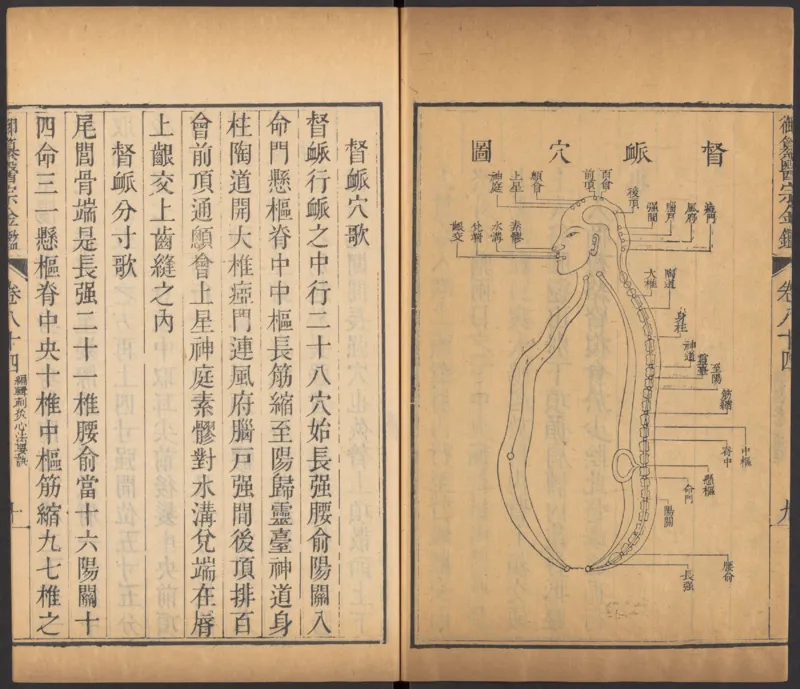 御纂醫宗金鑑
卷八十四
九
督脈穴圖
腦戶
風府
瘂門
强間
後頂
百會
前頂
顖會
上星
神庭
素髎
水溝
兌端
齦交
大椎
陶道
身柱
神道
靈臺
至陽
筋縮
中樞
脊中
懸樞
命門
陽關
腰俞
長强
督脈穴歌
督脈行脈之中行二十八穴始長强腰俞陽關入
命門懸樞脊中中樞長筋縮至陽歸靈臺神道身
柱陶道開大椎瘂門連風府腦戶强間後頂排百
會前頂通顖會上星神庭素髎對水溝兌端在唇
上齦交上齒縫之內
督脈分寸歌
尾閭骨端是長强二十一椎腰俞當十六陽關十
四命三一懸樞脊中央十椎中樞筋縮九七椎之
御纂醫宗金鑑
卷八十四
編輯刺灸心法要訣
十